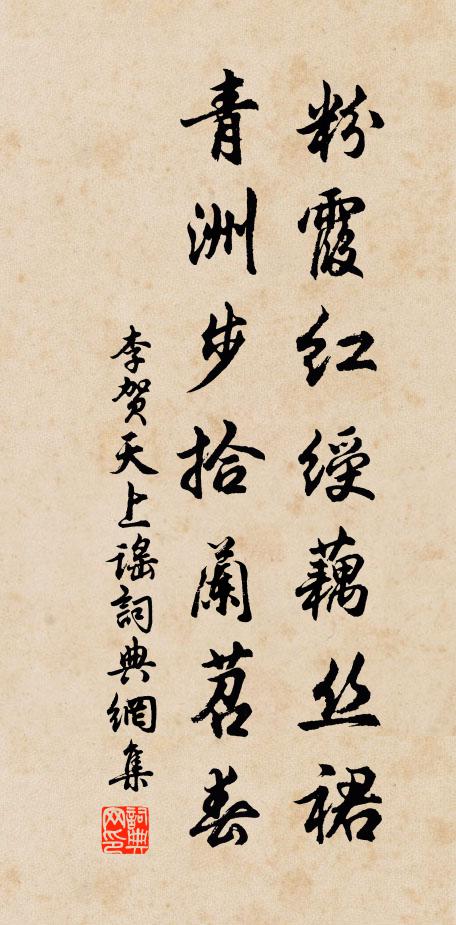 粉霞红绶藕丝裙
青洲步拾兰苕春
李贺天上谣詞典網集
詞典网印